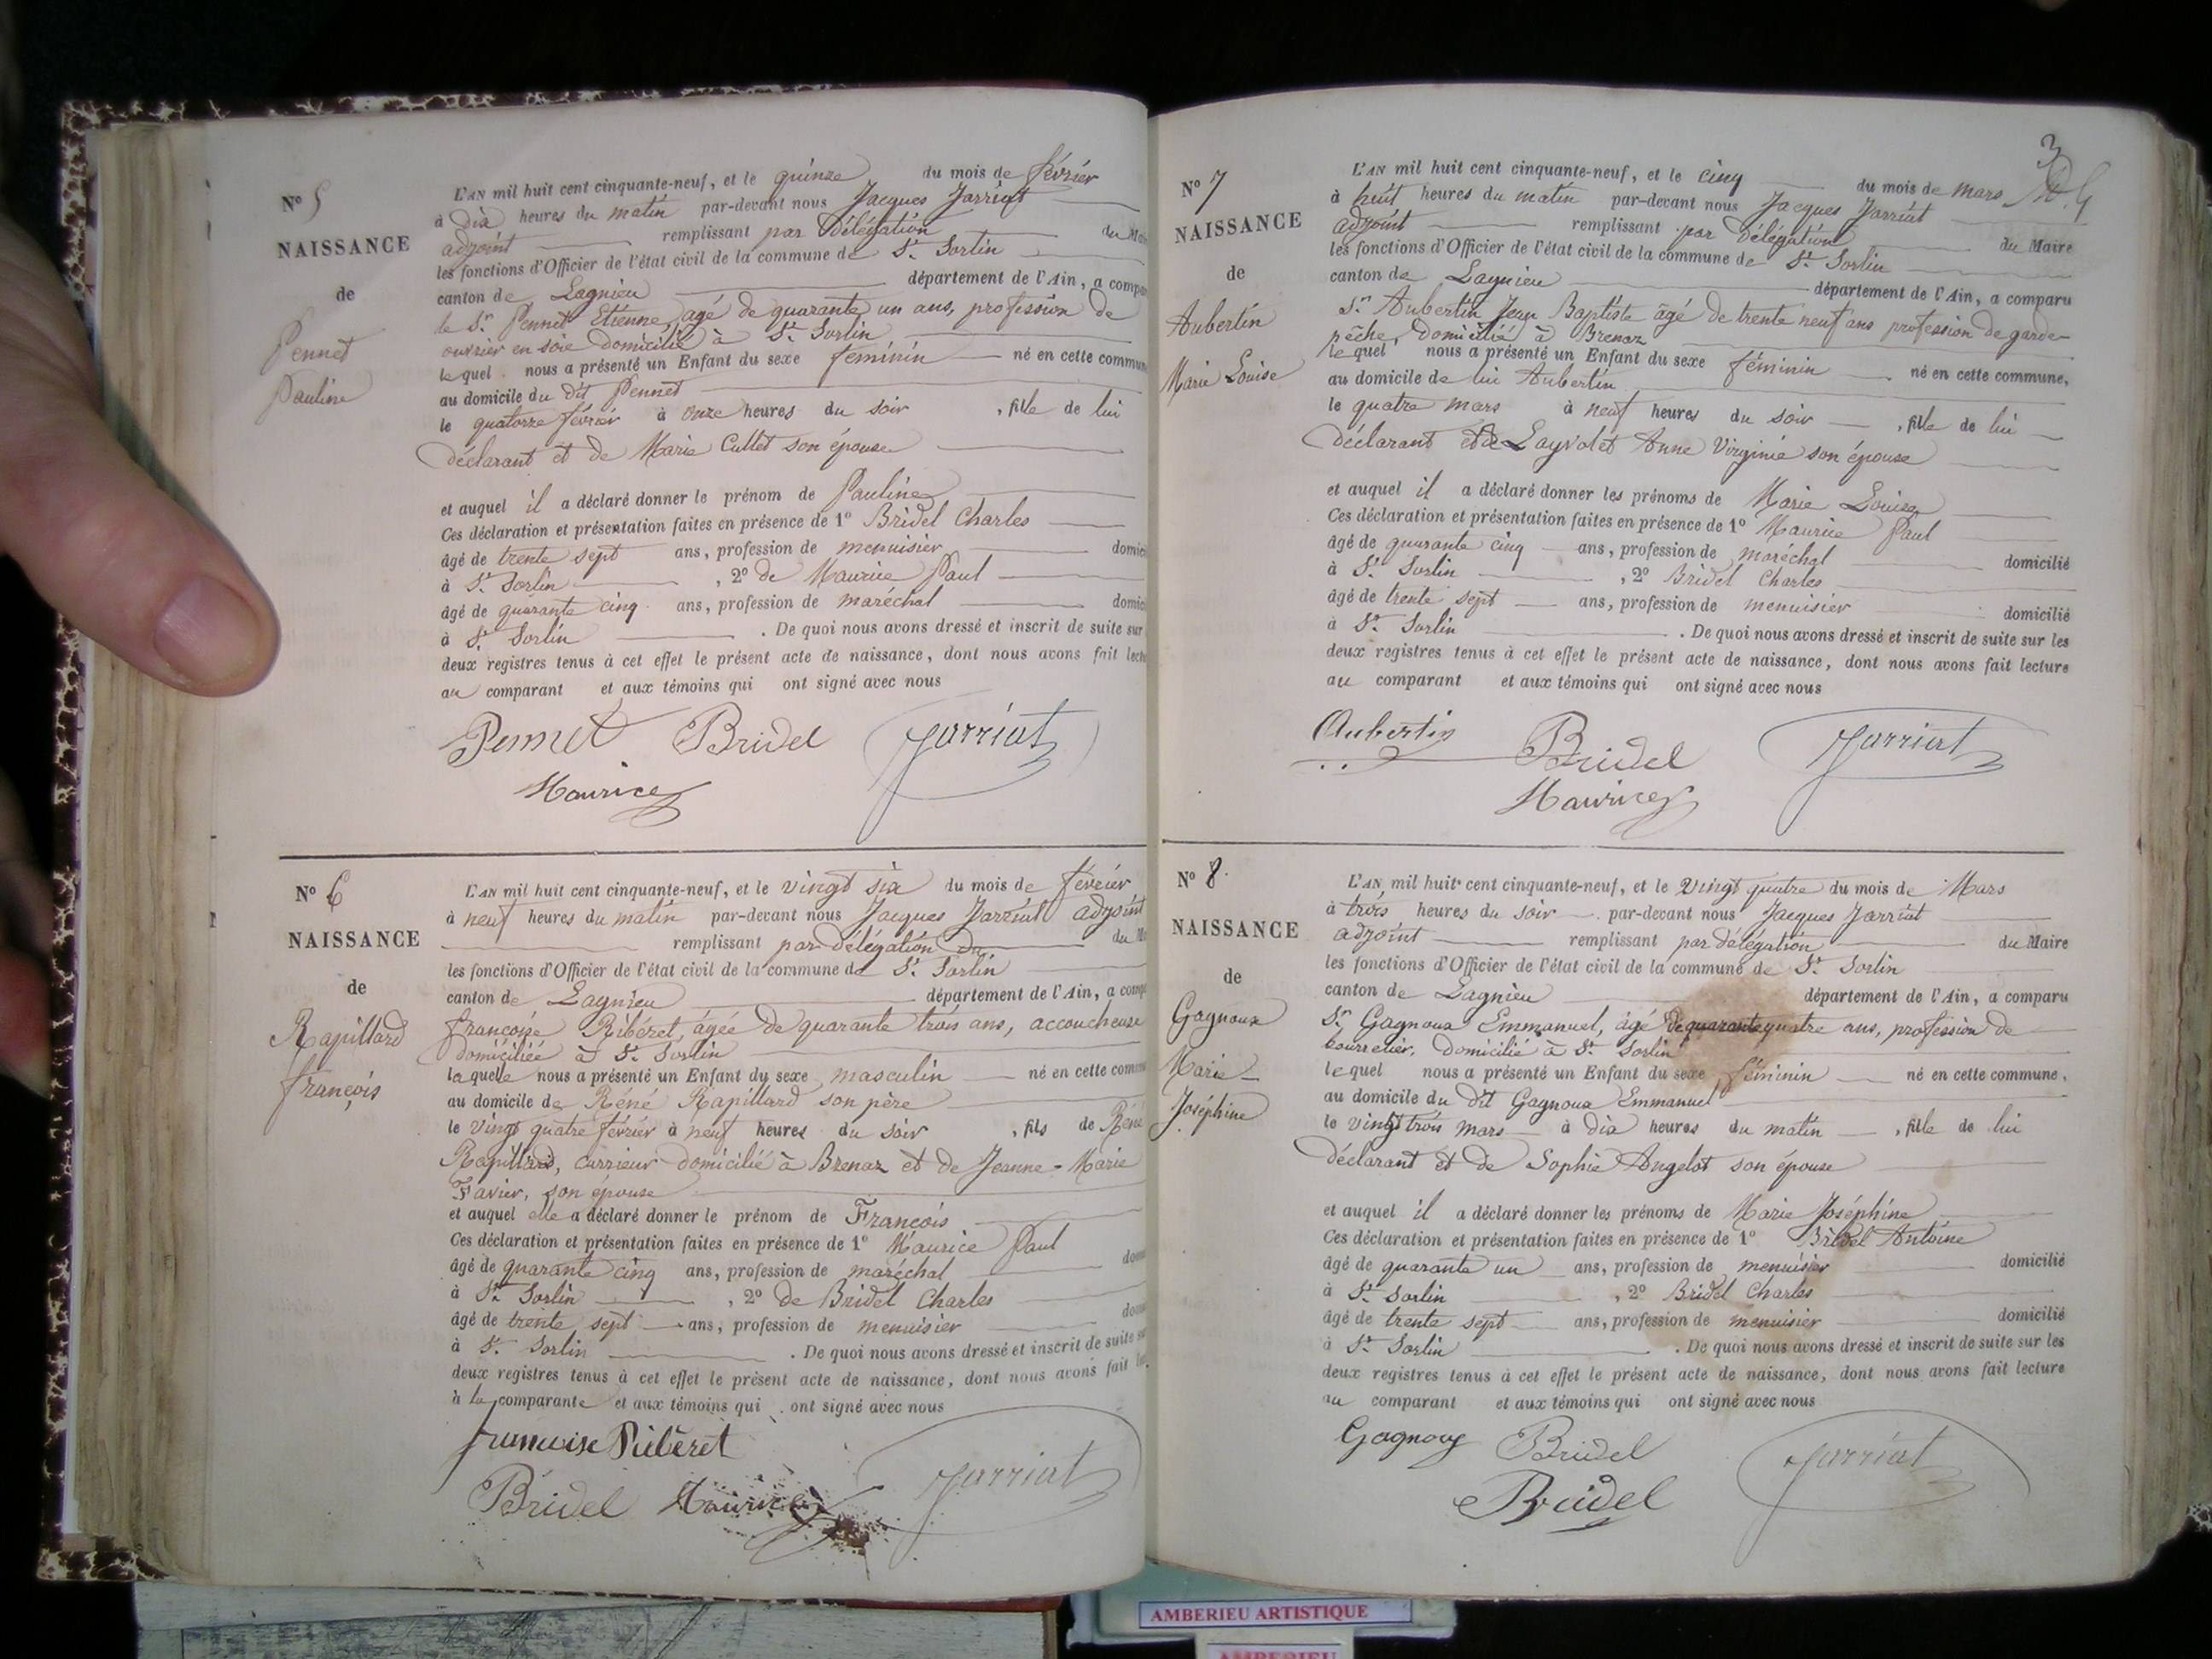 N° 5
NAISSANCE
de
Pennet
Pauline
L'AN mil huit cent cinquante-neuf, et le quinze du mois de février
à dix heures du matin par-devant nous Jacques Jarriat
adjoint remplissant par délégation du
les fonctions d'Officier de l'état civil de la commune de St. Sorlin
canton de Lagnieu département de l'Ain, a
le Sr. Pennet Etienne, agé de quarante un ans, profession de
ouvrier en soie domicilié à St. Sorlin
lequel nous a présenté un Enfant du sexe féminin né en cette
au domicile du dit Pennet
le quatorze février à onze heures du soir , fille de lui
déclarant et de Marie Cullet son épouse
et auquel il a déclaré donner le prénom de Pauline
Ces déclaration et présentation faites en présence de 1° Bridel Charles
âgé de trente sept ans, profession de menuisier
à St. Sorlin , 2° de Maurice Paul
âgé de quarante cinq ans, profession de maréchal
à St. Sorlin . De quoi nous avons dressé et inscrit de suite sur
deux registres tenus à cet effet le présent acte de naissance, dont nous avons fait
au comparant et aux témoins qui ont signé avec nous
Pennet Bridel Jarriat
Maurice
N° 6
NAISSANCE
de
Rapillard
françois
L'AN mil huit cent cinquante-neuf, et le vingt six du mois de février
à neuf heures du matin par-devant nous Jacques Jarriat adjoint
remplissant par délégation du du
les fonctions d'Officier de l'état civil de la commune de St. Sorlin
canton de Lagnieu département de l'Ain, a
françoise Ribéret, âgée de quarante trois ans, accoucheuse
domiciliée à St. Sorlin
laquelle nous a présenté un Enfant du sexe masculin né en cette
au domicile de Réné Rapillard son père
le vingt quatre février à neuf heures du soir , fils de Réné
Rapillard, carrieur domicilié à Brenaz et de Jeanne-Marie
Favier, son épouse
et auquel elle a déclaré donner le prénom de François
Ces déclaration et présentation faites en présence de 1° Maurice Paul
âgé de quarante cinq ans, profession de maréchal
à St. Sorlin , 2° de Bridel Charles
âgé de trente sept ans, profession de menuisier
à St. Sorlin . De quoi nous avons dressé et inscrit de suite
deux registres tenus à cet effet le présent acte de naissance, dont nous avons fait
à la comparante et aux témoins qui ont signé avec nous
francoise Ribéret
Bridel Maurice Jarriat
3
N° 7
NAISSANCE
de
Aubertin
Marie Louise
L'AN mil huit cent cinquante-neuf, et le cinq du mois de mars
à huit heures du matin par-devant nous Jacques Jarriat
adjoint remplissant par délégation du Maire
les fonctions d'Officier de l'état civil de la commune de St. Sorlin
canton de Lagnieu département de l'Ain, a comparu
Sr. Aubertin Jean Baptiste âgé de trente neuf ans profession de garde-
pêche, domicilié à Brenaz
lequel nous a présenté un Enfant du sexe féminin né en cette commune,
au domicile de lui Aubertin
le quatre mars à neuf heures du soir , fille de lui
déclarant et de Layvolet Anne Virginie son épouse
et auquel il a déclaré donner les prénoms de Marie Louise
Ces déclaration et présentation faites en présence de 1° Maurice Paul
âgé de quarante cinq ans, profession de maréchal domicilié
à St. Sorlin , 2° Bridel Charles
âgé de trente sept ans, profession de menuisier domicilié
à St. Sorlin . De quoi nous avons dressé et inscrit de suite sur les
deux registres tenus à cet effet le présent acte de naissance, dont nous avons fait lecture
au comparant et aux témoins qui ont signé avec nous
Aubertin Bridel Jarriat
Maurice
N° 8
NAISSANCE
de
Gagnoux
Marie-
Joséphine
L'AN mil huit cent cinquante-neuf, et le vingt quatre du mois de Mars
à trois heures du soir par-devant nous Jacques Jarriat
adjoint remplissant par délégation du Maire
les fonctions d'Officier de l'état civil de la commune de St. Sorlin
canton de Lagnieu département de l'Ain, a comparu
Sr. Gagnoux Emmanuel, âgé de quarante quatre ans, profession de
bourrelier, domicilié à St. Sorlin
lequel nous a présenté un Enfant du sexe féminin né en cette commune,
au domicile du dit Gagnoux Emmanuel
le vingt trois mars à dix heures du matin , fille de lui
déclarant et de Sophie Angelot son épouse
et auquel il a déclaré donner les prénoms de Marie Joséphine
Ces déclaration et présentation faites en présence de 1° Bridel Antoine
âgé de quarante un ans, profession de menuisier domicilié
à St. Sorlin , 2° Bridel Charles
âgé de trente sept ans, profession de menuisier domicilié
à St. Sorlin . De quoi nous avons dressé et inscrit de suite sur les
deux registres tenus à cet effet le présent acte de naissance, dont nous avons fait lecture
au comparant et aux témoins qui ont signé avec nous
Gagnoux Bridel Jarriat
Bridel
AMBERIEU ARTISTIQUE
AMBERIEU